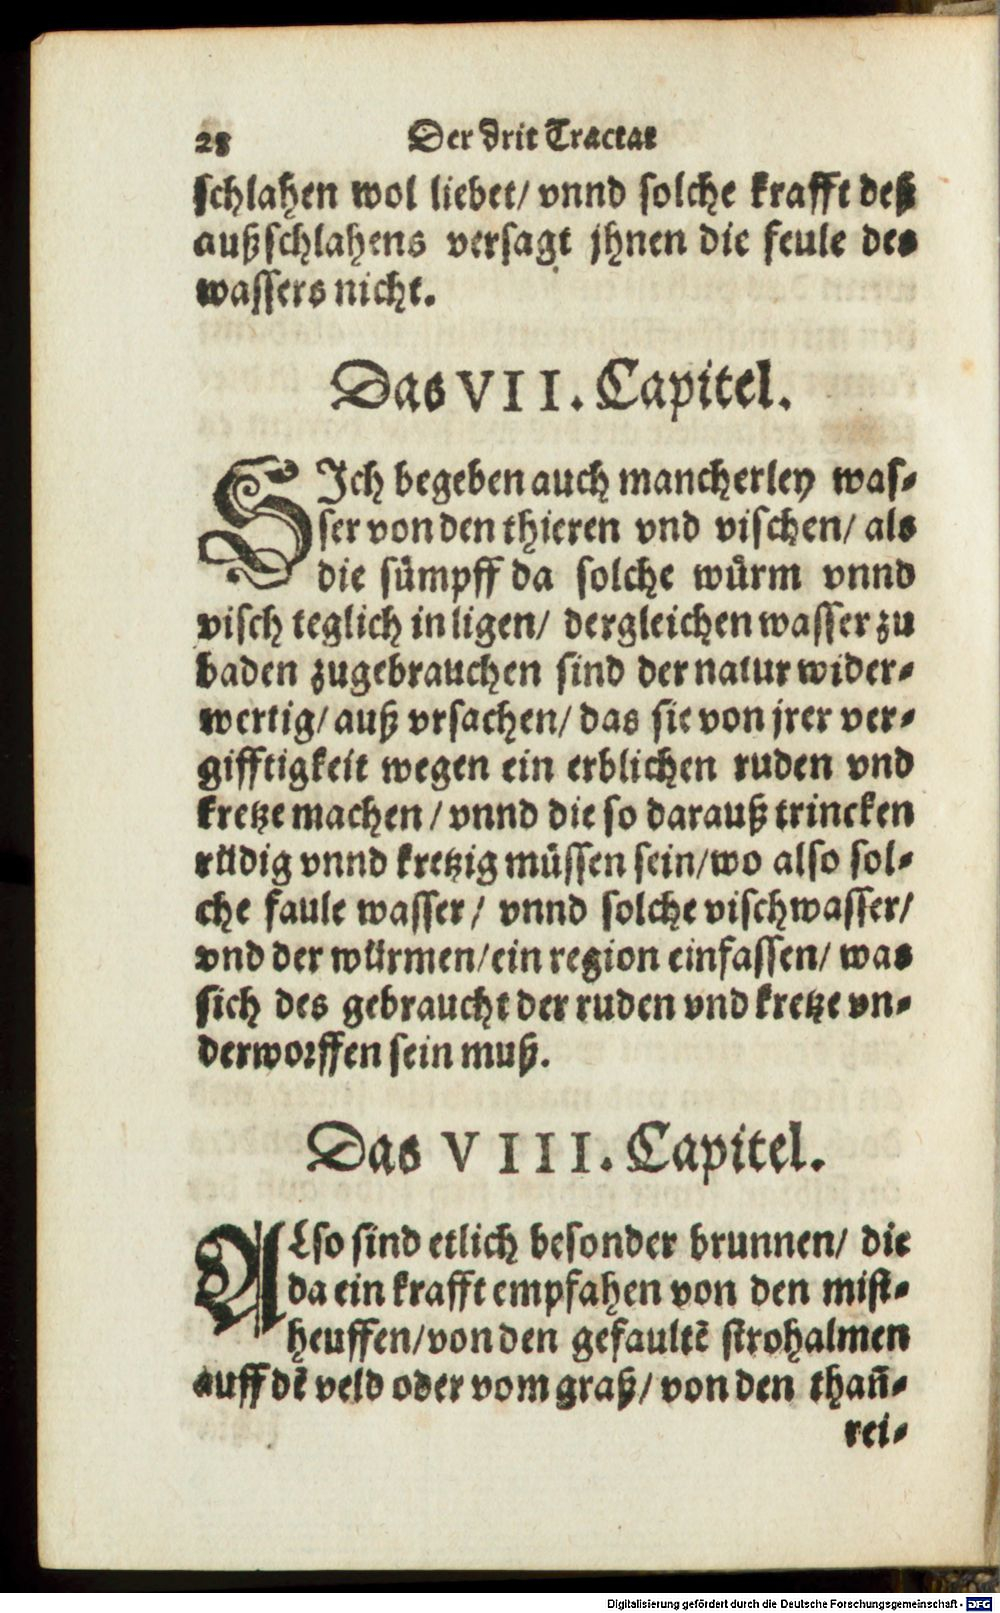 28 Der drit Tractat
schlahen wol liebet/ vnnd solche krafft deß
außschlahens versagt jhnen die feule des
wassers nicht.
Das VII. Capitel.
SIch begeben auch mancherley was-
ser von den thieren vnd vischen/ als
die sümpff da solche würm vnnd
visch teglich in ligen/ dergleichen wasser zu
baden zugebrauchen sind der natur wider-
wertig/ auß vrsachen/ das sie von jrer ver-
gifftigkeit wegen ein erblichen ruden vnd
kretze machen/ vnnd die so darauß trincken
rüdig vnnd kretzig müssen sein/ wo also sol-
che faule wasser/ vnnd solche vischwasser/
vnd der würmen/ ein region einfassen/ was
sich des gebraucht der ruden vnd kretze vn-
derworffen sein muß.
Das VIII. Capitel.
ALso sind etlich besonder brunnen/ die
da ein krafft empfahen von den mist-
heuffen/ von den gefaultē strohalmen
auff dē veld oder vom graß/ von den thañ-
rei-
Digitalisierung gefördert durch die Deutsche Forschungsgemeinschaft - DFG